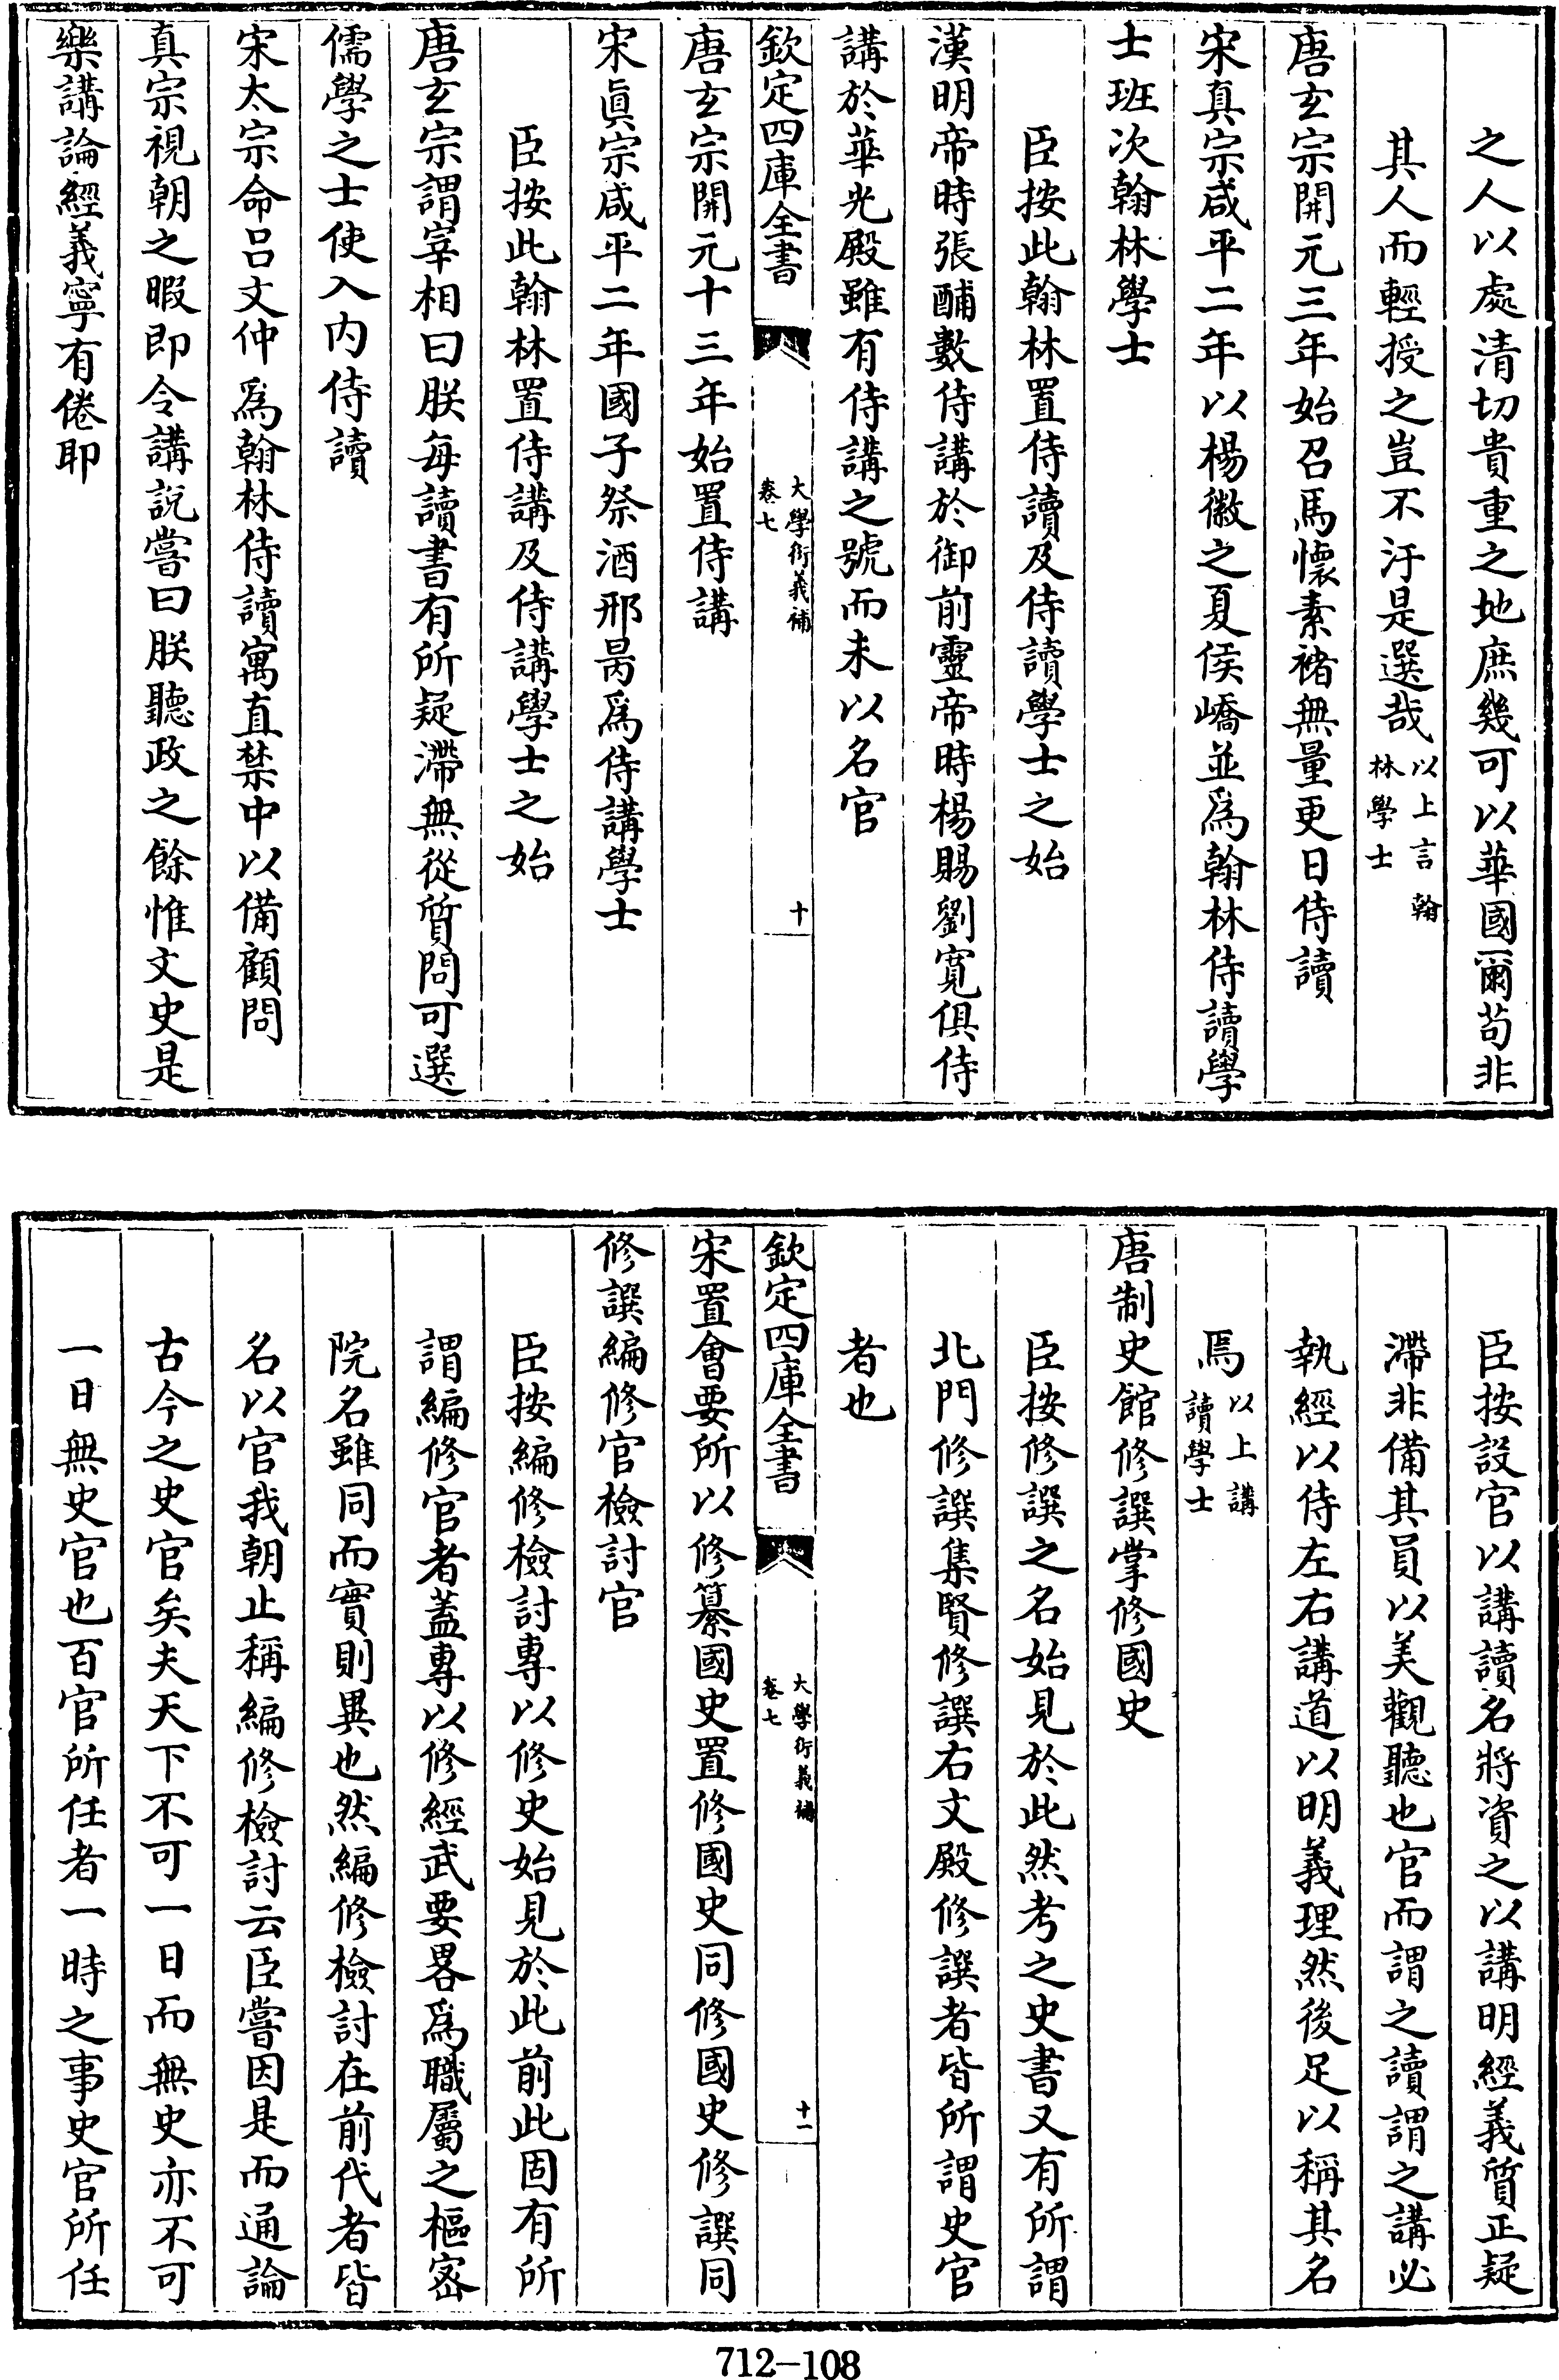 之人以處清切貴重之地庶幾可以華國爾苟非
其人而輕授之豈不汙是選哉以上言翰林學士
唐玄宗開元三年始召馬懷素褚無量更日侍讀
宋真宗咸平二年以楊徽之夏侯嶠並爲翰林侍讀學
士班次翰林學士
臣按此翰林置侍讀及侍讀學士之始
漢明帝時張酺數侍講於御前靈帝時楊賜劉寬俱侍
講於華光殿雖有侍講之號而未以名官
欽定四庫全書 大學衍義補 卷七 十
唐玄宗開元十三年始置侍講
宋眞宗咸平二年國子祭酒邢昺爲侍講學士
臣按此翰林置侍講及侍講學士之始
唐玄宗謂宰相曰朕每讀書有所疑滯無從質問可選
儒學之士使入内侍讀
宋太宗命呂文仲爲翰林侍讀寓直禁中以備顧問
真宗視朝之暇即令講說嘗曰朕聽政之餘惟文史是
樂講論經義寧有倦耶
臣按設官以講讀名將資之以講明經義質正疑
滯非備其員以美觀聽也官而謂之讀謂之講必
執經以侍左右講道以明義理然後足以稱其名
焉以上講讀學士
唐制史館修譔掌修國史
臣按修譔之名始見於此然考之史書又有所謂
北門修譔集賢修譔右文殿修譔者皆所謂史官
者也
欽定四庫全書 大學衍義補 卷七 十一
宋置會要所以修纂國史置修國史同修國史修譔同
修譔編修官檢討官
臣按編修檢討專以修史始見於此前此固有所
謂編修官者蓋專以修經武要畧爲職屬之樞密
院名雖同而實則異也然編修檢討在前代者皆
名以官我朝止稱編修檢討云臣嘗因是而通論
古今之史官矣夫天下不可一日而無史亦不可
一日無史官也百官所任者一時之事史官所任
712-108